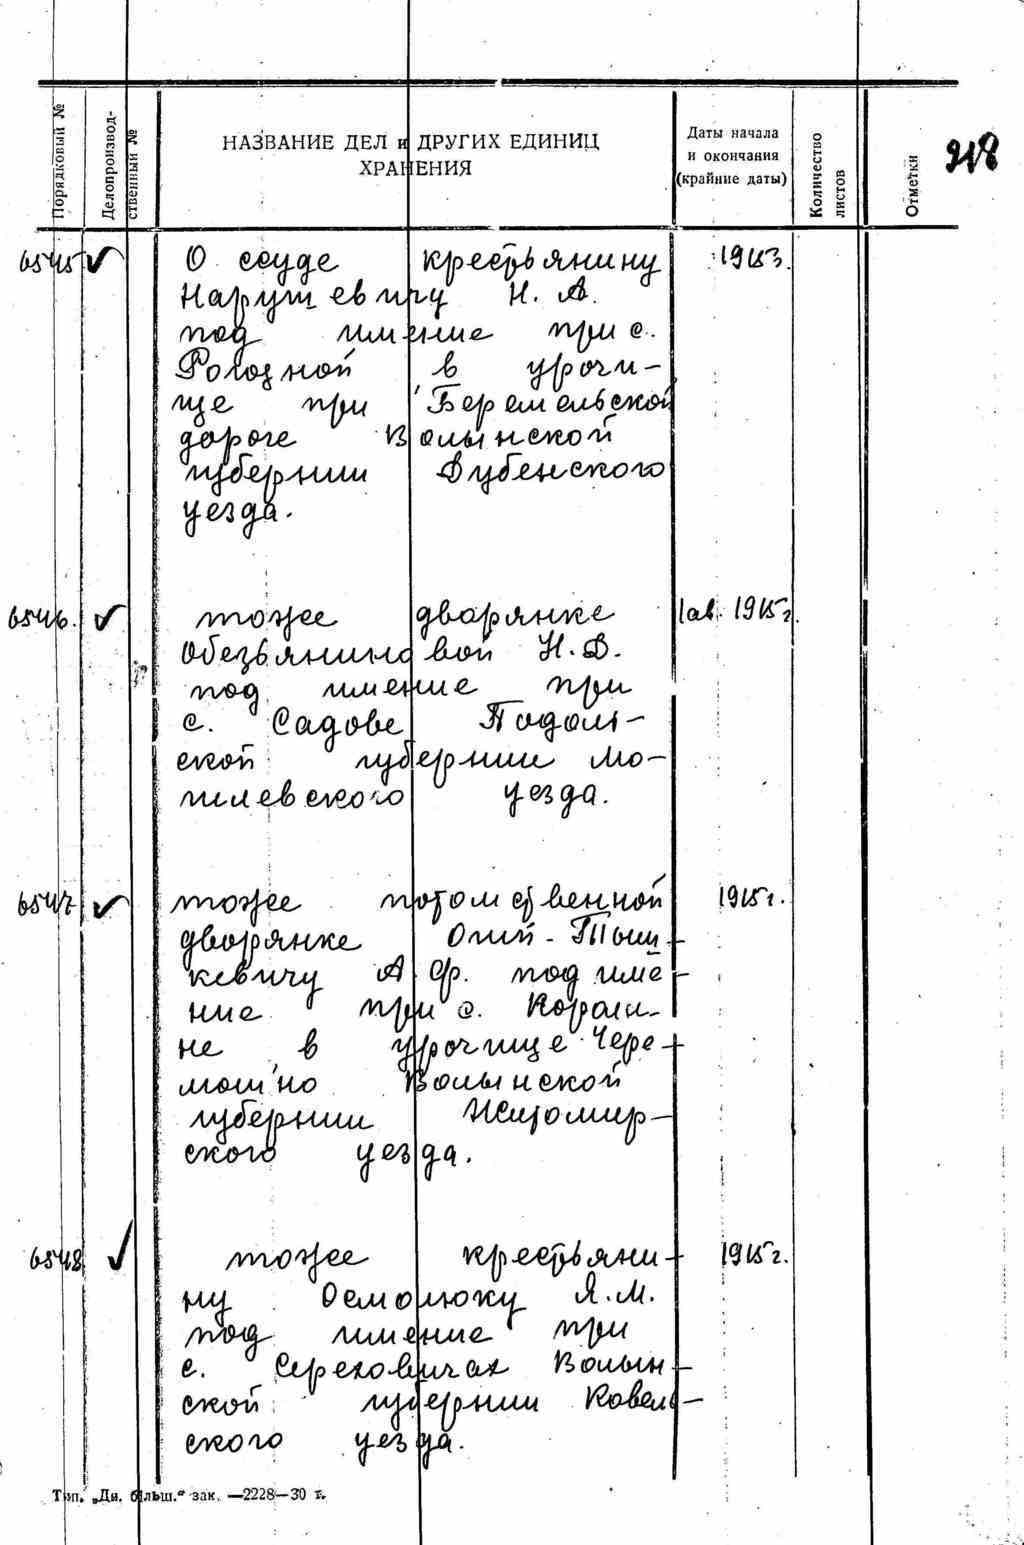 Порядковый №
Делопроизвод-
ственный №
НАЗВАНИЕ ДЕЛ и ДРУГИХ ЕДИНИЦ
ХРАНЕНИЯ
Даты начала
и окончания
(крайние даты)
Количество
листов
Отметки
318
6545 О ссуде крестьянину 1913.
Нарушевичу Н. А.
под имение при с.
Рогозной в урочи-
ще при Беремельской
дороге Волынской
губернии Дубенского
уезда.
6546. тоже дворянке 1ав. 1915г.
Обезьяниновой Н. Д.
под имение при
с. Садове Подоль-
ской губернии Мо-
гилевского уезда.
6547 тоже потомственной 1915г.
дворянке Огий-Тыш-
кевичу А. Ф. под име-
ние при с. Кораги-
не в урочище Чере-
мошно Волынской
губернии Житомир-
ского уезда.
6548 тоже крестьяни- 1915г.
ну Осмолюку Я. М.
под имение при
с. Сереховичах Волын-
ской губернии Ковель-
ского уезда.
Тип. „Дн. більш." зак. —2228—30 г.